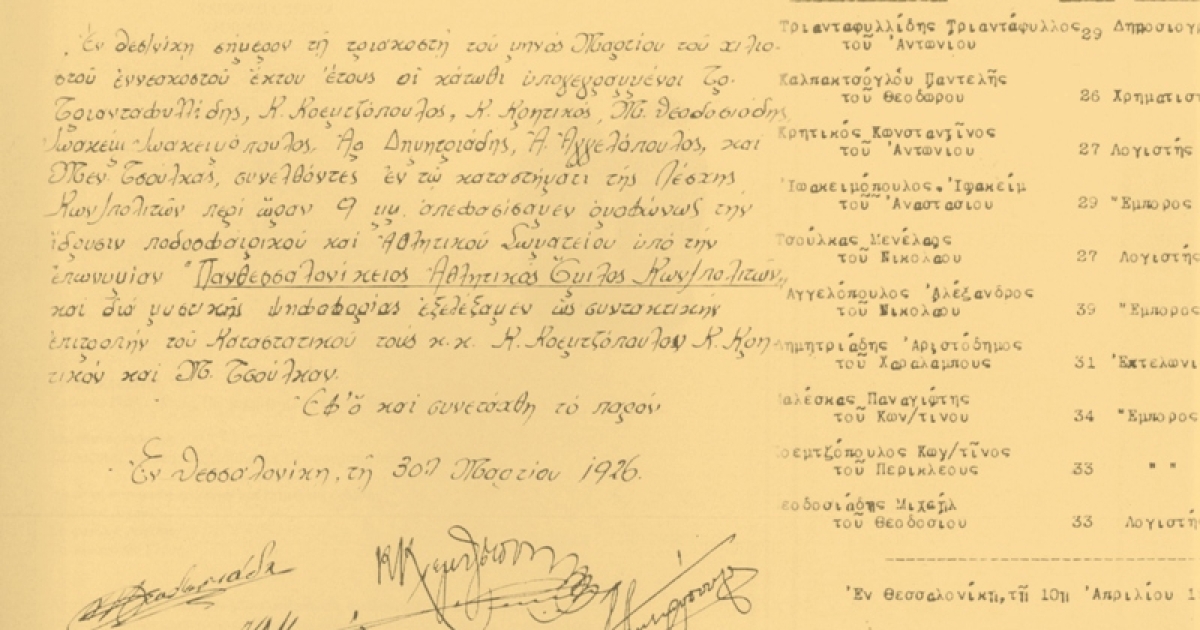 Ἐν Θεσ/νίκῃ σήμερον τῇ τριακοστῇ τοῦ μηνός Μαρτίου τοῦ χιλιο-
στοῦ ἐννεακοστοῦ ἕκτου ἔτους οἱ κάτωθι ὑπογεγραμμένοι Τρ.
Τριανταφυλλίδης, Κ. Κοεμτζόπουλος, Κ. Κρητικός, Μ. Θεοδοσιάδης,
Ἰωακείμ Ἰωακειμόπουλος, Ἀρ. Δημητριάδης, Ἀ. Ἀγγελόπουλος, καί
Μεν. Τσούλκας, συνελθόντες ἐν τῷ καταστήματι τῆς Λέσχης
Κων/πολιτῶν περί ὥραν 9 μμ. ἀπεφασίσαμεν ὁμοφώνως τήν
ἵδρυσιν ποδοσφαιρικοῦ καί Ἀθλητικοῦ Σωματείου ὑπό τήν
ἐπωνυμίαν "Πανθεσσαλονίκειος Ἀθλητικός Ὅμιλος Κων/πολιτῶν„
καί διά μυστικῆς ψηφοφορίας ἐξελέξαμεν ὡς συντακτικήν
ἐπιτροπήν τοῦ Καταστατικοῦ τούς κ.κ. Κ. Κοεμτζόπουλον Κ. Κρη-
τικόν καί Μ. Τσούλκαν.
Ἐφ' ᾧ καί συνετάχθη τό παρόν
Ἐν Θεσσαλονίκῃ, τῇ 30ῃ Μαρτίου 1926.
Τριανταφυλλίδης Τριαντάφυλλος 29 Δημοσιογ
τοῦ Ἀντωνίου
Καλπακτσόγλου Παντελῆς
τοῦ Θεοδώρου 26 Χρηματιστ
Κρητικός Κωνσταντῖνος
τοῦ Ἀντωνίου 27 Λογιστής
Ἰωακειμόπουλος Ἰωακείμ
τοῦ Ἀναστασίου 29 Ἔμπορος
Τσούλκας Μενέλαος
τοῦ Νικολάου 27 Λογιστής
Ἀγγελόπουλος Ἀλέξανδρος
τοῦ Νικολάου 39 Ἔμπορος
Δημητριάδης Ἀριστόδημος
τοῦ Χαραλάμπους 31 Ἐκτελωνι
αλέσκας Παναγιώτης
τοῦ Κων/τίνου 34 Ἔμπορος
οεμτζόπουλος Κων/τῖνος
τοῦ Περικλέους 33 " "
εοδοσιάδης Μιχαήλ
τοῦ Θεοδοσίου 33 Λογιστής
Ἐν Θεσσαλονίκῃ, τῇ 10ῃ Ἀπριλίου 1